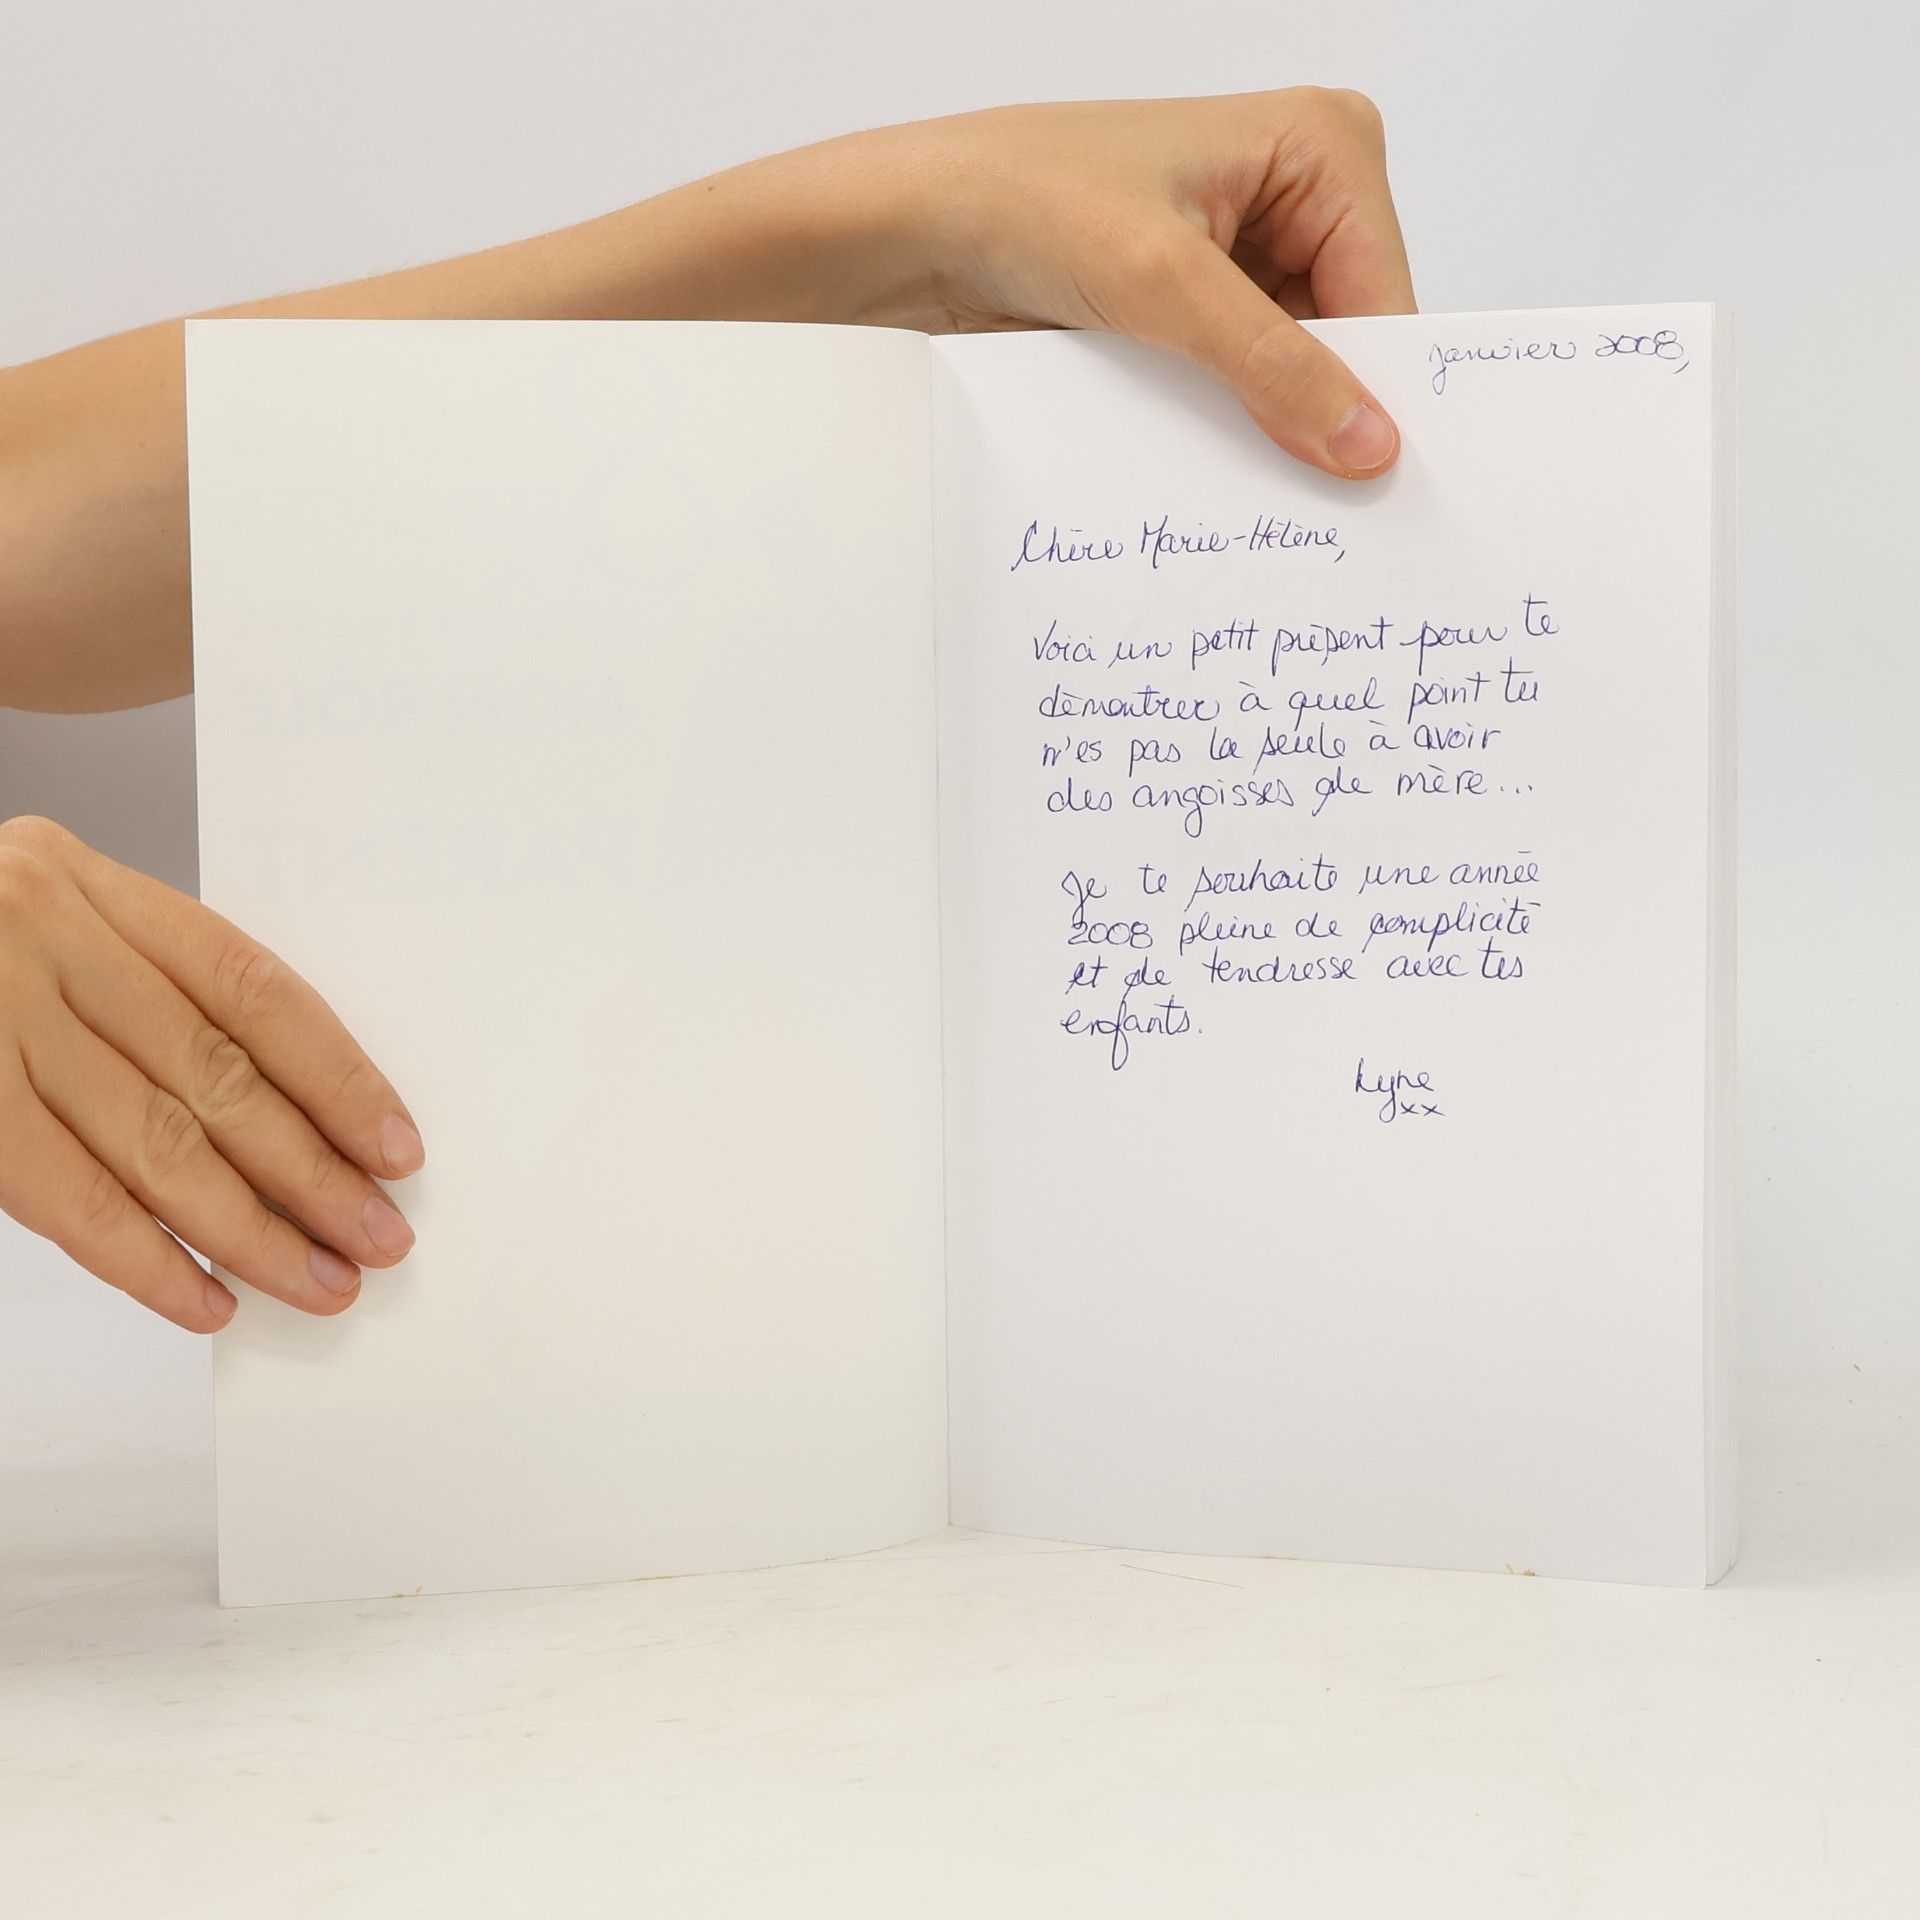 janvier 2008,
Chère Marie-Hélène,
Voici un petit présent pour te
démontrer à quel point tu
n'es pas la seule à avoir
des angoisses de mère...
Je te souhaite une année
2008 pleine de complicité
et de tendresse avec tes
enfants.
Lyne
xx